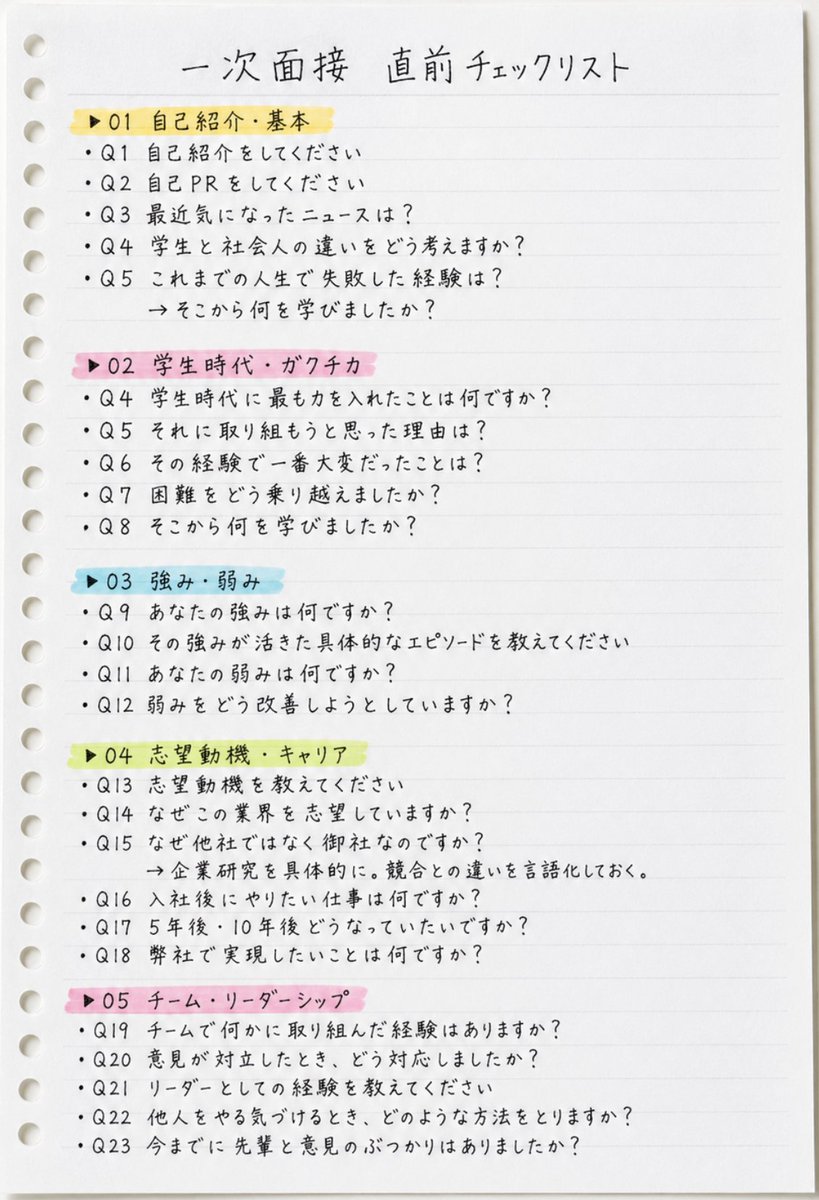 一次面接 直前チェックリスト
▶01 自己紹介・基本
・Q1 自己紹介をしてください
・Q2 自己PRをしてください
・Q3 最近気になったニュースは？
・Q4 学生と社会人の違いをどう考えますか？
・Q5 これまでの人生で失敗した経験は？
→そこから何を学びましたか？
▶02 学生時代・ガクチカ
・Q4 学生時代に最も力を入れたことは何ですか？
・Q5 それに取り組もうと思った理由は？
・Q6 その経験で一番大変だったことは？
・Q7 困難をどう乗り越えましたか？
・Q8 そこから何を学びましたか？
▶03 強み・弱み
・Q9 あなたの強みは何ですか？
・Q10 その強みが活きた具体的なエピソードを教えてください
・Q11 あなたの弱みは何ですか？
・Q12 弱みをどう改善しようとしていますか？
▶04 志望動機・キャリア
・Q13 志望動機を教えてください
・Q14 なぜこの業界を志望していますか？
・Q15 なぜ他社ではなく御社なのですか？
→企業研究を具体的に。競合との違いを言語化しておく。
・Q16 入社後にやりたい仕事は何ですか？
・Q17 5年後・10年後どうなっていたいですか？
・Q18 弊社で実現したいことは何ですか？
▶05 チーム・リーダーシップ
・Q19 チームで何かに取り組んだ経験はありますか？
・Q20 意見が対立したとき、どう対応しましたか？
・Q21 リーダーとしての経験を教えてください
・Q22 他人をやる気づけるとき、どのような方法をとりますか？
・Q23 今までに先輩と意見のぶつかりはありましたか？